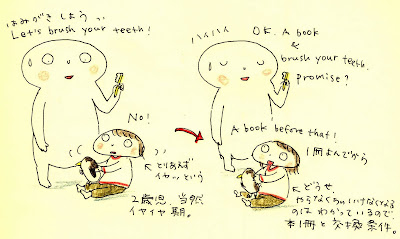 はみがきしよう〃
Let's brush your teeth!
No!
とりあえず
イヤッという
2歳児、当然
イヤイヤ期。
ハイハイ
OK. A book
&
brush your teeth.
promise?
A book before that!
1冊よんでから
どうせ
やらなくちゃいけなくなる
のはわかっているので、
本1冊と交換条件。